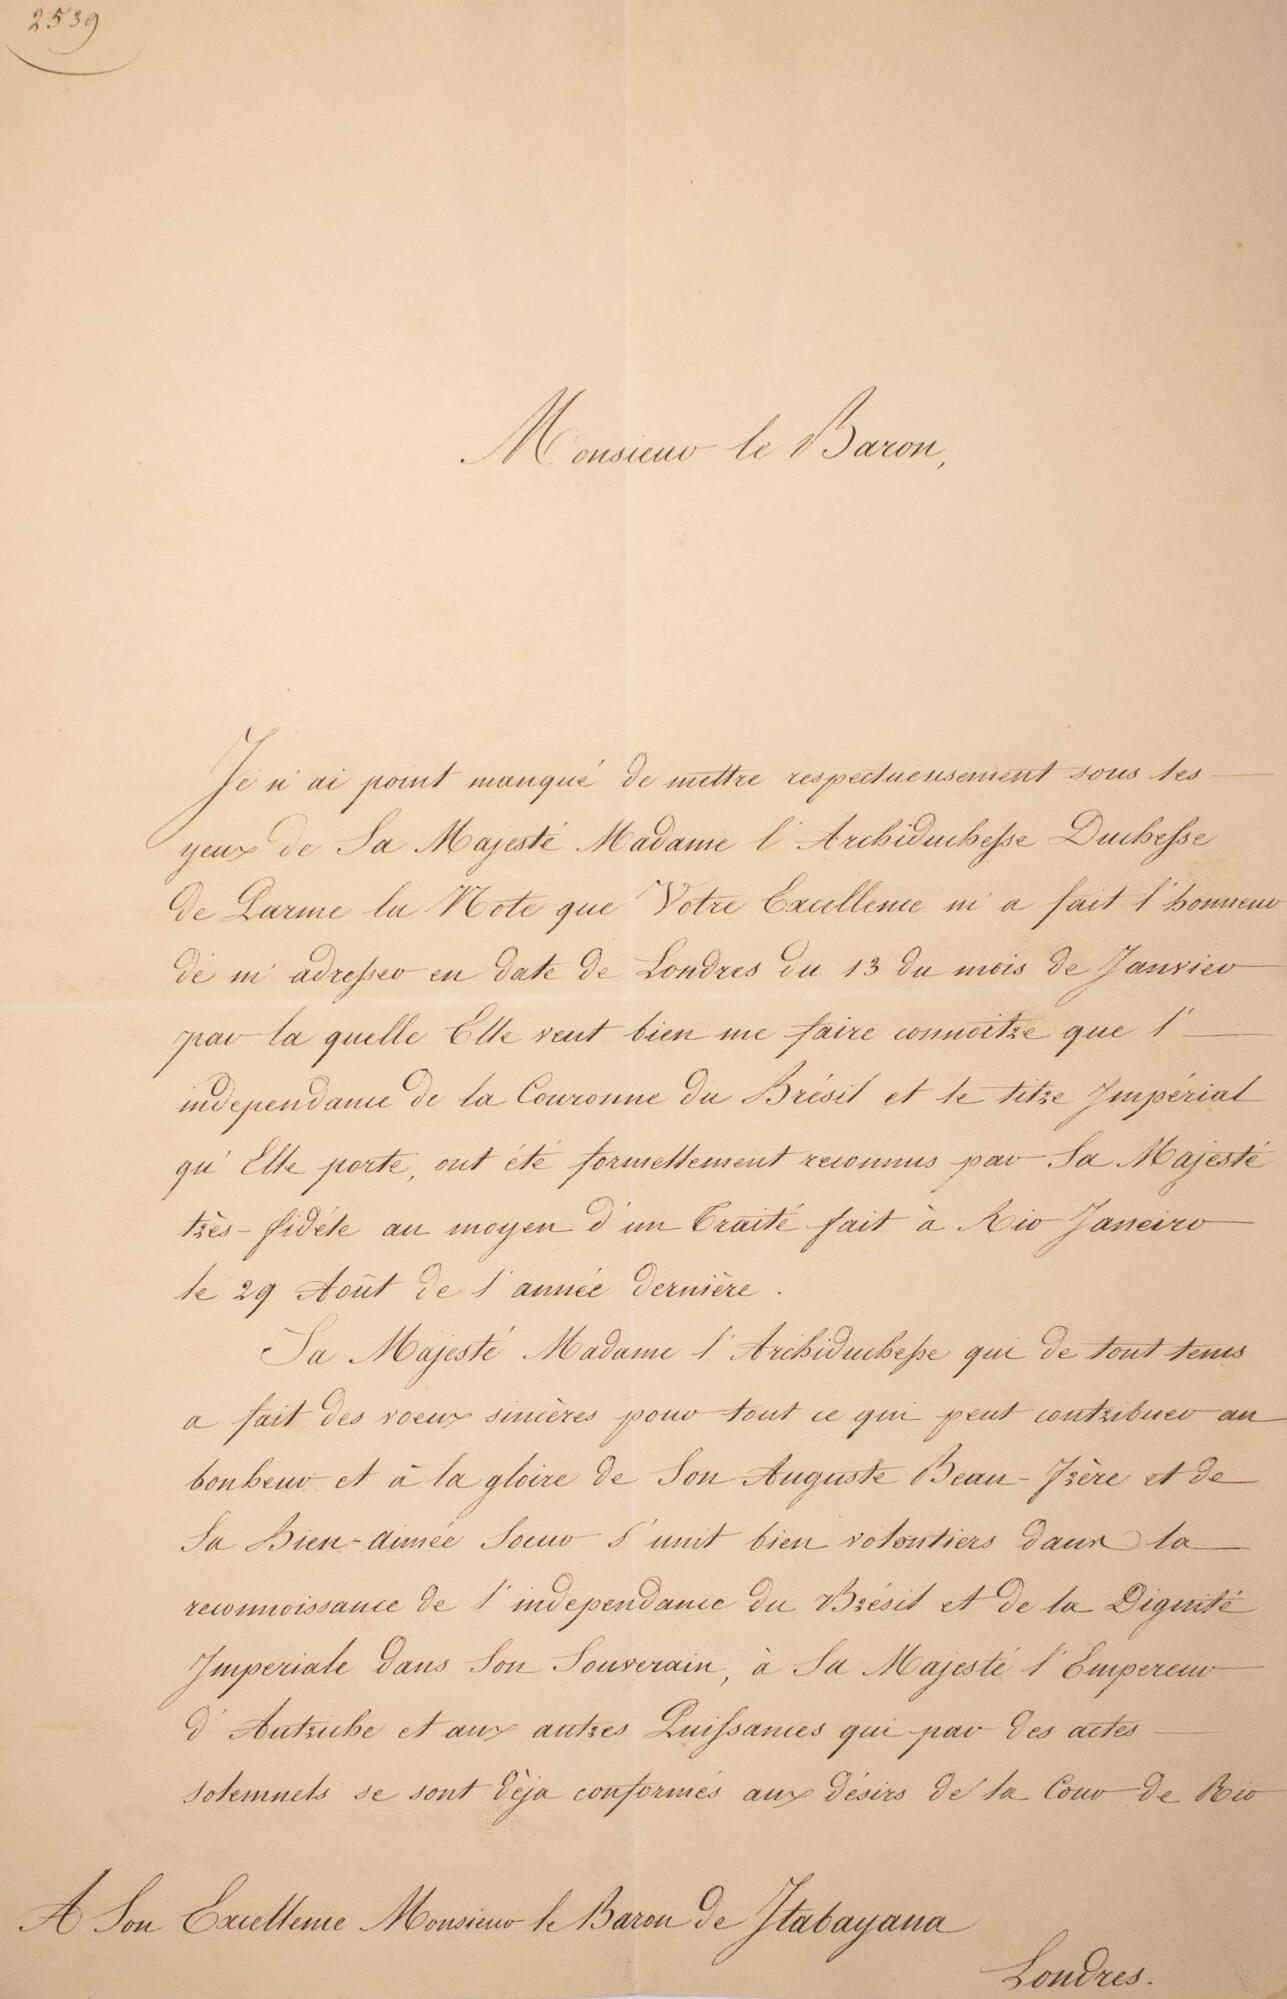 2539
Monsieur le Baron,
Je n'ai point manqué de mettre respectueusement sous les
yeux de Sa Majesté Madame l'Archiduchesse Duchesse
de Parme la Note que Votre Excellence m'a fait l'honneur
de m'adresser en date de Londres du 13 du mois de Janvier
par la quelle Elle veut bien me faire connoître que l'
independance de la Couronne du Brésil et le titre Impérial
qu'Elle porte, ont été formellement reconnus par Sa Majesté
très-fidéle au moyen d'un Traité fait à Rio Janeiro
le 29 Août de l'année dernière.
Sa Majesté Madame l'Archiduchesse qui de tout tems
a fait des voeux sincères pour tout ce qui peut contribuer au
bonheur et à la gloire de Son Auguste Beau-Frère et de
Sa Bien-aimée Soeur S'unit bien volontiers dans la
reconnoissance de l'independance du Brésil et de la Dignité
Imperiale dans Son Souverain, à Sa Majesté l'Empereur
d'Autriche et aux autres Puissances qui par des actes
solemnels se sont dèja conformés aux désirs de la Cour de Rio
A Son Excellence Monsieur le Baron de Itabayana
Londres.